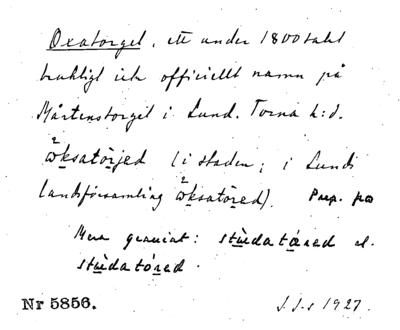 Oxatorget, ett under 1800talet
brukligt icke officiellt namn på
Mårtenstorget i Lund. Torna h:d.
ω̱ksatòrjed (i staden; i Lunds
landsförsamling ω̱ksatòred). Prep. på
Mera genuint: stüdatάred el.
stüdatóred.
Nr 5856. J.J-s 1927.